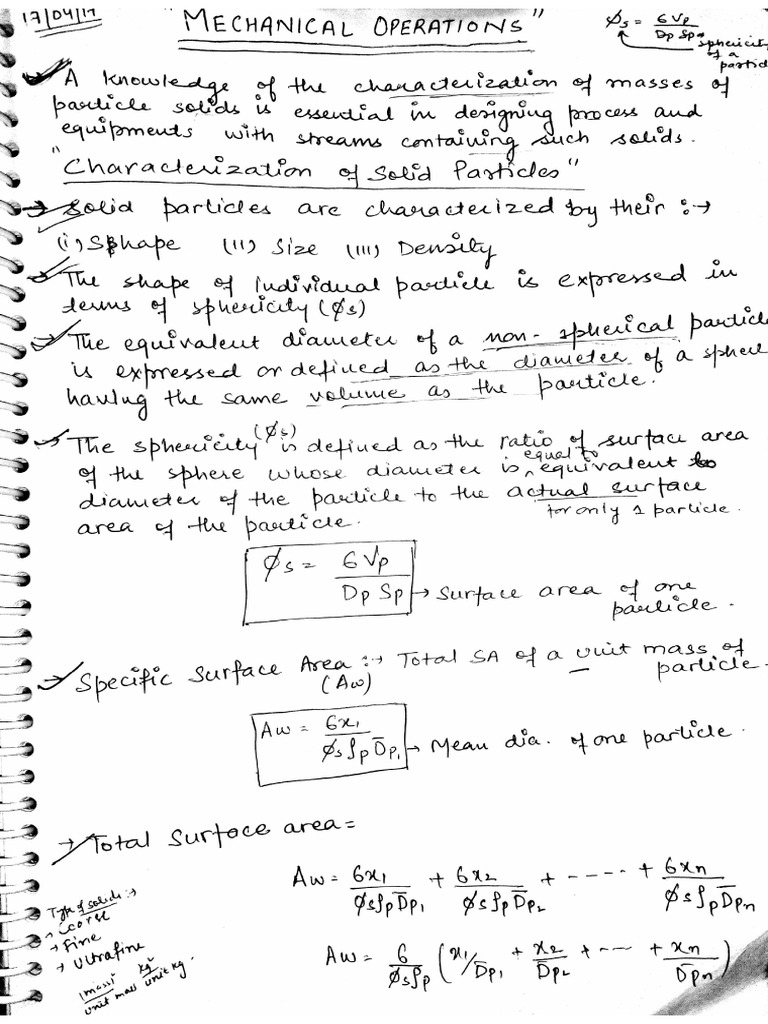 17/04/17
"MECHANICAL OPERATIONS"
φs = 6Vp / Dp Sp → sphericity of a particle
A knowledge of the characterization of masses of
particle solids is essential in designing process and
equipments with streams containing such solids.
"Characterization of Solid Particles"
→ Solid particles are characterized by their :→
(i) Shape (ii) Size (iii) Density
→ The shape of individual particle is expressed in
terms of sphericity (φs)
→ The equivalent diameter of a non-spherical particle
is expressed or defined as the diameter of a sphere
having the same volume as the particle.
→ The sphericity (φs) is defined as the ratio of surface area
of the sphere whose diameter is equal to equivalent
diameter of the particle to the actual surface
area of the particle. for only 1 particle.
φs = 6Vp / Dp Sp → Surface area of one
particle.
→ Specific Surface Area :→ Total SA of a unit mass of
(Aw) particle.
Aw = 6x1 / φs ρp D̄p1 → Mean dia. of one particle.
→ Total Surface area =
Aw = 6x1 / φs ρp D̄p1 + 6x2 / φs ρp D̄p2 + ----- + 6xn / φs ρp D̄pn
Aw = 6 / φs ρp (x1/D̄p1 + x2/D̄p2 + --- + xn/D̄pn)
Type of solids :→
→ Corse
→ Fine
→ Ultrafine
1 mass / unit mass kg / unit kg.